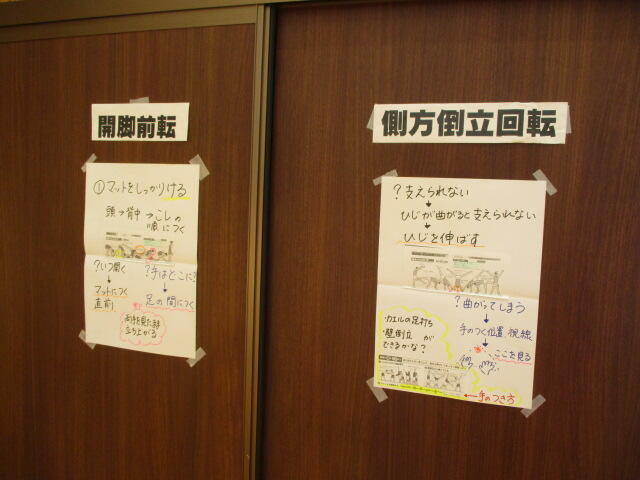 開脚前転
①マットをしっかりける
頭→背中→こしの
順につく
?いつ開く
マットにつく
直前
?手はどこに?
足の間につく
立ち上がる
側方倒立回転
?支えられない
ひじが曲がると支えられない
ひじを伸ばす
?曲がってしまう
手のつく位置、視線
ここを見る
・カエルの足打ち
・壁倒立が
できるかな?
手のつき方